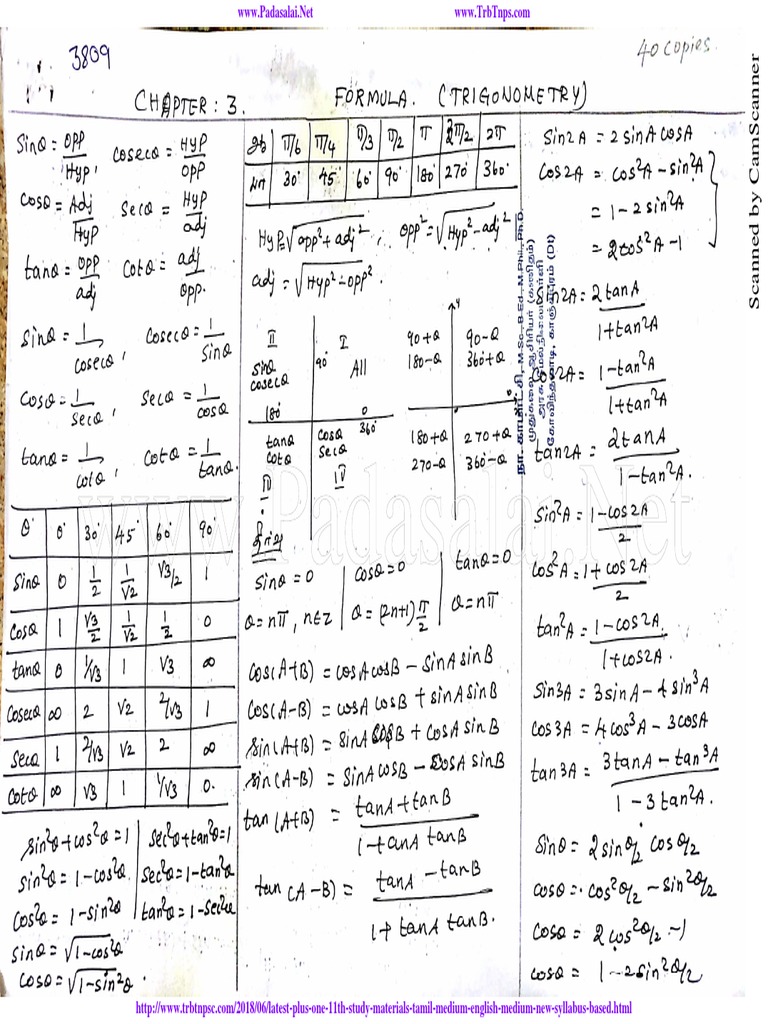 www.Padasalai.Net www.TrbTnps.com
3809
40 copies.
CHAPTER: 3. FORMULA. (TRIGONOMETRY)
Sinθ = Opp/Hyp, Cosecθ = Hyp/Opp
Cosθ = Adj/Hyp Secθ = Hyp/adj
tanθ = Opp/adj Cotθ = adj/opp.
Sinθ = 1/cosecθ, Cosecθ = 1/Sinθ
Cosθ = 1/Secθ, Secθ = 1/cosθ
tanθ = 1/cotθ, Cotθ = 1/tanθ.
θ 0° 30° 45° 60° 90°
Sinθ 0 1/2 1/√2 √3/2 1
Cosθ 1 √3/2 1/√2 1/2 0
tanθ 0 1/√3 1 √3 ∞
Cosecθ ∞ 2 √2 2/√3 1
Secθ 1 2/√3 √2 2 ∞
Cotθ ∞ √3 1 1/√3 0.
Sin²θ + cos²θ = 1 Sec²θ + tan²θ = 1
Sin²θ = 1 - cos²θ Sec²θ = 1 - tan²θ
Cos²θ = 1 - sin²θ tan²θ = 1 - Sec²θ
Sinθ = √1-cos²θ
Cosθ = √1-sin²θ.
π/6 π/4 π/3 π/2 π 3π/2 2π
30° 45° 60° 90° 180° 270° 360°
Hyp = √opp² + adj², opp² = √Hyp² - adj²
adj = √Hyp² - opp².
II I
Sinθ 90° All
Cosecθ
180° 0
360°
tanθ Cosθ
Cotθ Secθ
III IV
y
90+θ 90-θ
180-θ 360+θ
180+θ 270+θ
270-θ 360-θ
தீர்வு
Sinθ = 0 Cosθ = 0 tanθ = 0
θ = nπ, n∈z θ = (2n+1) π/2 θ = nπ
Cos(A+B) = cosA cosB - sinA sinB
Cos(A-B) = cosA cosB + sinA sinB
Sin(A+B) = sinA cosB + cosA sinB
Sin(A-B) = SinA cosB - CosA sinB
tan(A+B) = tanA + tanB / 1 - tanA tanB
tan(A-B) = tanA - tanB / 1 + tanA tanB.
Sin2A = 2 sinA cosA
Cos2A = cos²A - sin²A
= 1 - 2 sin²A
= 2 cos²A - 1
Sin2A = 2 tanA / 1 + tan²A
Cos2A = 1 - tan²A / 1 + tan²A
tan2A = 2 tanA / 1 - tan²A.
Sin²A = 1 - cos2A / 2
Cos²A = 1 + cos2A / 2
tan²A = 1 - cos2A / 1 + cos2A.
Sin3A = 3 sinA - 4 sin³A
Cos3A = 4 cos³A - 3 cosA
tan3A = 3 tanA - tan³A / 1 - 3 tan²A.
Sinθ = 2 sinθ/2 cosθ/2
cosθ = cos²θ/2 - sin²θ/2
Cosθ = 2 cos²θ/2 - 1
cosθ = 1 - 2 sin²θ/2
M.Sc., B.Ed., M.Phil., Ph.D.
Scanned by CamScanner
www.Padasalai.Net
http://www.trbtnpsc.com/2018/06/latest-plus-one-11th-study-materials-tamil-medium-english-medium-new-syllabus-based.html